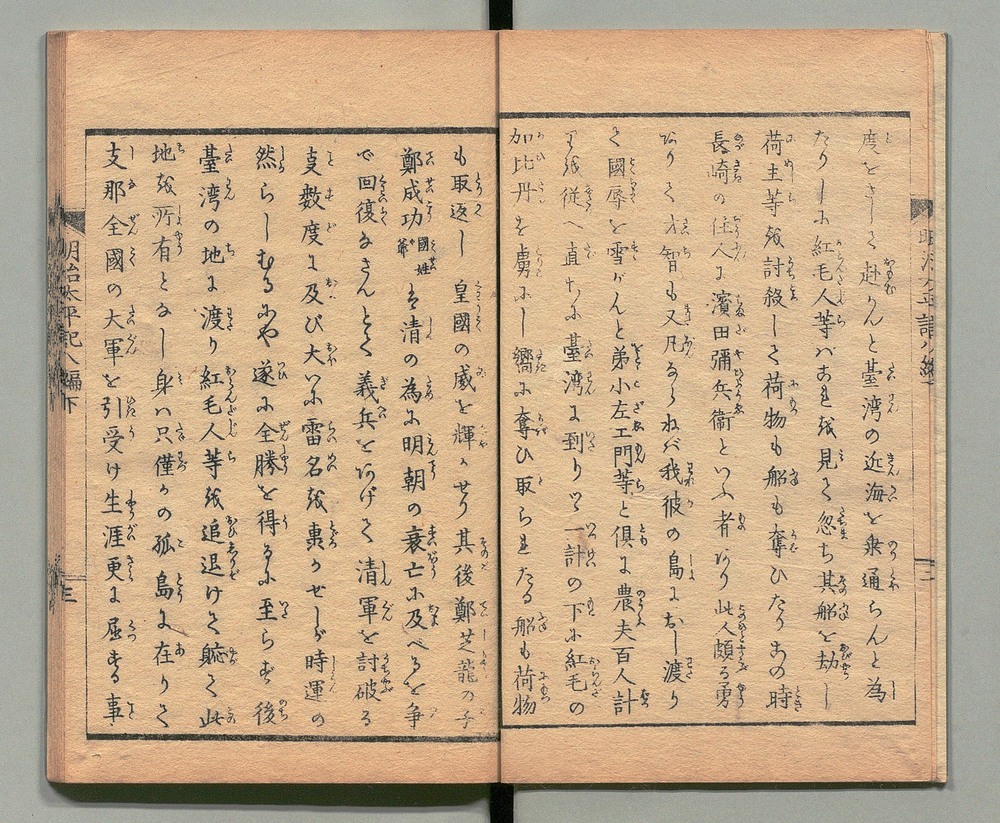 度をさして赴かんと臺湾の近海を乗通らんと為
たりしに紅毛人等ハこれを見て忽ち其船を劫し
荷主等を討殺して荷物も船も奪ひたりこの時
長崎の住人に濱田彌兵衞といふ者あり此人頗る勇
ありて才智も又凡ならねバ我彼の島におし渡り
て國辱を雪がんと弟小左エ門等と倶に農夫百人計
りを従へ直ちに臺湾に到りつゝ一計の下に紅毛の
加比丹を虜にし嚮に奪ひ取られたる船も荷物
も取返し皇國の威を輝かせり其後鄭芝龍の子
鄭成功國姓爺は清の為に明朝の衰亡に及べるを争
で回復なさんとて義兵をあげて清軍を討破る
支数度に及び大いに雷名を轟かせしが時運の
然らしむるにや遂に全勝を得るに至らず後
臺湾の地に渡り紅毛人等を追退けて聢て此
地を所有となし身ハ只僅かの孤島に在りて
支那全國の大軍を引受け生涯更に屈する事
明治太平記八編下
三